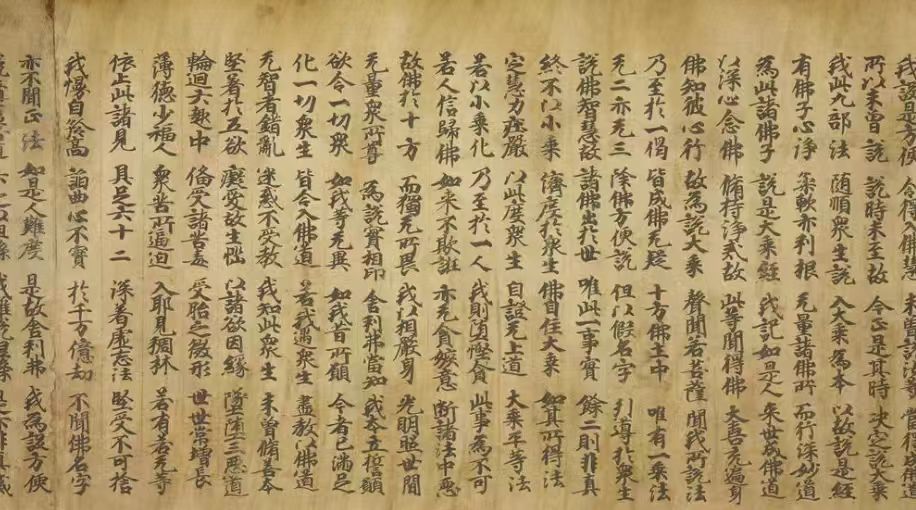 所以未曾說 說時未至故 今正是其時 決定說大乘
我此九部法 隨順衆生說 入大乘為本 以故說是經
有佛子心淨 柔軟亦利根 无量諸佛所 而行深妙道
為此諸佛子 說是大乘經 我記如是人 来世成佛道
以深心念佛 脩持淨戒故 此等聞得佛 大喜充遍身
佛知彼心行 故為說大乘 聲聞若菩薩 聞我所說法
乃至於一偈 皆成佛无疑 十方佛土中 唯有一乘法
无二亦无三 除佛方便說 但以假名字 引導於衆生
說佛智慧故 諸佛出於世 唯此一事實 餘二則非真
終不以小乘 濟度於衆生 佛自住大乘 如其所得法
定慧力莊嚴 以此度衆生 自證无上道 大乘平等法
若以小乘化 乃至於一人 我則墮慳貪 此事為不可
若人信歸佛 如来不欺誑 亦无貪嫉意 斷諸法中惡
故佛於十方 而獨无所畏 我以相嚴身 光明照世間
无量衆所尊 為說實相印 舍利弗當知 我本立誓願
欲令一切衆 如我等无異 如我昔所願 今者已滿足
化一切衆生 皆令入佛道 若我遇衆生 盡教以佛道
无智者錯亂 迷惑不受教 我知此衆生 未曾脩善本
堅著於五欲 癡愛故生惱 以諸欲因緣 墜墮三惡道
輪迴六趣中 備受諸苦毒 受胎之微形 世世常增長
薄德少福人 衆苦所逼迫 入耶見稠林 若有若无等
依止此諸見 具足六十二 深著虛妄法 堅受不可捨
我慢自矜高 諂曲心不實 於千万億劫 不聞佛名字
亦不聞正法 如是人難度 是故舍利弗 我為設方便